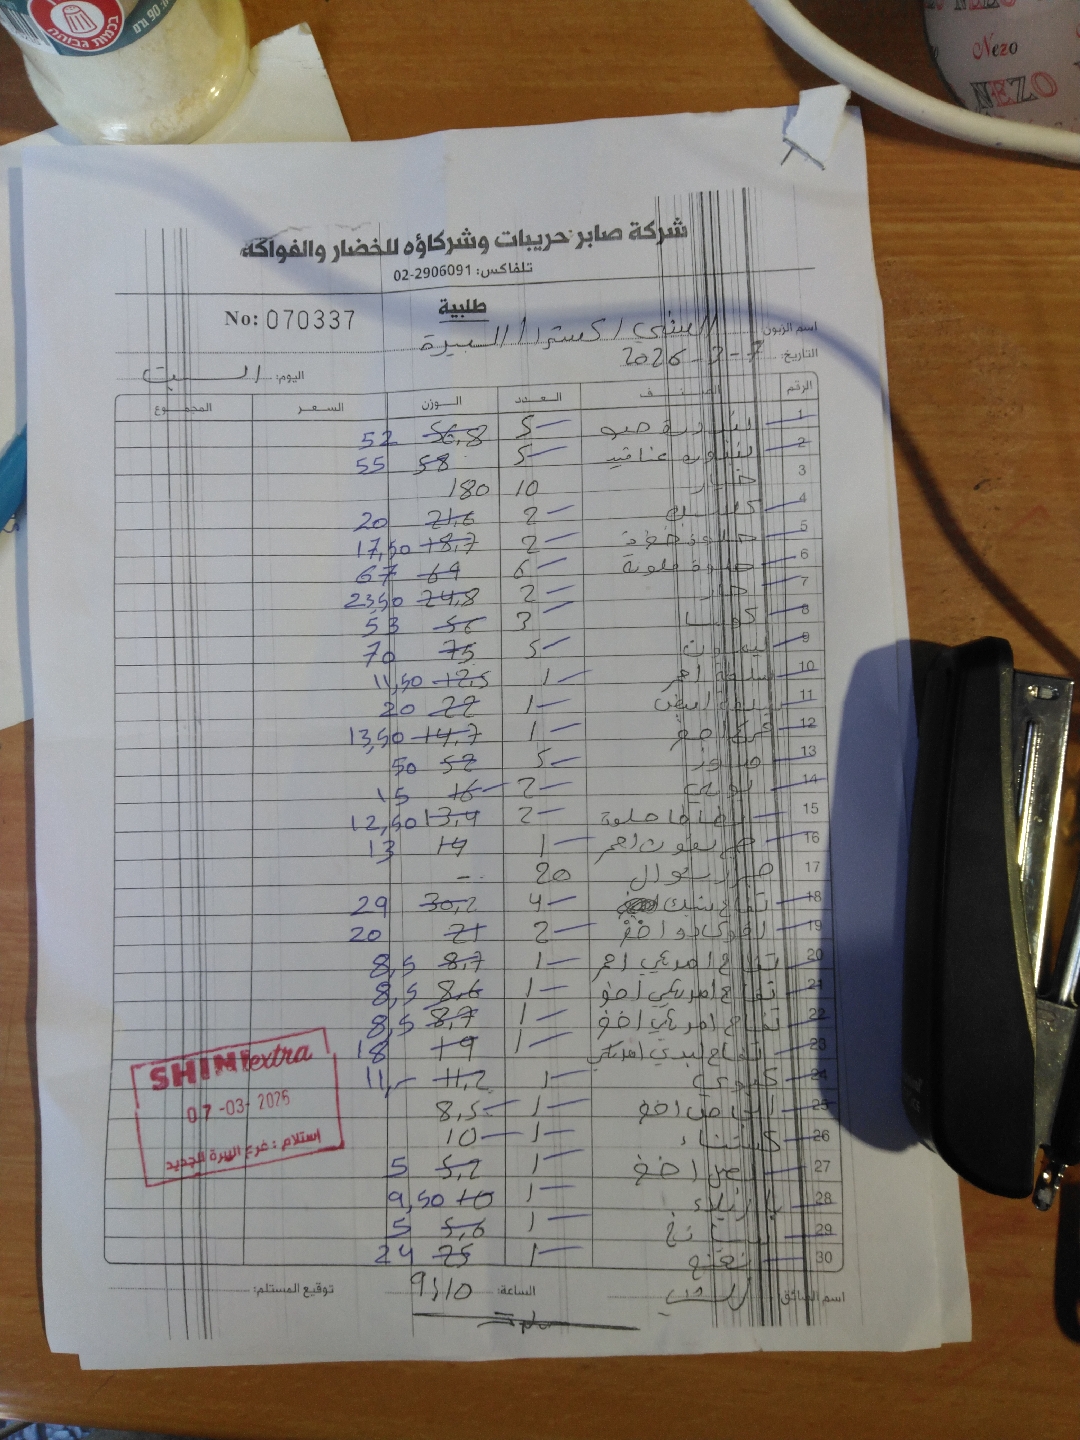 בכמות גבוהה
90 גרם
NEZO
Nezo
NEZO
شركة صابر حريبات وشركاؤه للخضار والفواكه
تلفاكس: 02-2906091
طلبية
No: 070337
اسم الزبون: الشني اكسترا / البيرة
التاريخ: 7-3-2026
اليوم: السبت
الرقم الصنف العدد الوزن السعر المجموع
1 بندورة 5 56,8 52
2 بندورة عناقيد 5 58 55
3 خيار 10 180
4 2 21,6 20
5 2 18,7 17,50
6 حلوة ملونة 6 69 67
7 2 24,8 23,50
8 كوسا 3 56 53
9 ليمون 5 75 70
10 احمر 1 12,5 11,50
11 ابيض 1 22 20
12 1 14,7 13,50
13 5 52 50
14 2 16 15
15 بطاطا حلوة 2 13,4 12,50
16 احمر 1 14 13
17 20 -
18 تفاح 4 30,2 29
19 افوكادو اخضر 2 21 20
20 تفاح امريكي احمر 1 8,7 8,5
21 تفاح امريكي اخضر 1 8,6 8,5
22 تفاح امريكي اخضر 1 8,7 8,5
23 تفاح 1 19 18
24 كيوي 1 11,2 11,-
25 اجاص اخضر 1 8,5
26 كستناء 1 10
27 اخضر 1 5,2 5
28 1 10 9,50
29 1 5,6 5
30 نعنع 1 25 24
SHINI extra
07-03-2026
إستلام : فرع البيرة الجديد
اسم السائق:
الساعة: 9:10
توقيع المستلم: